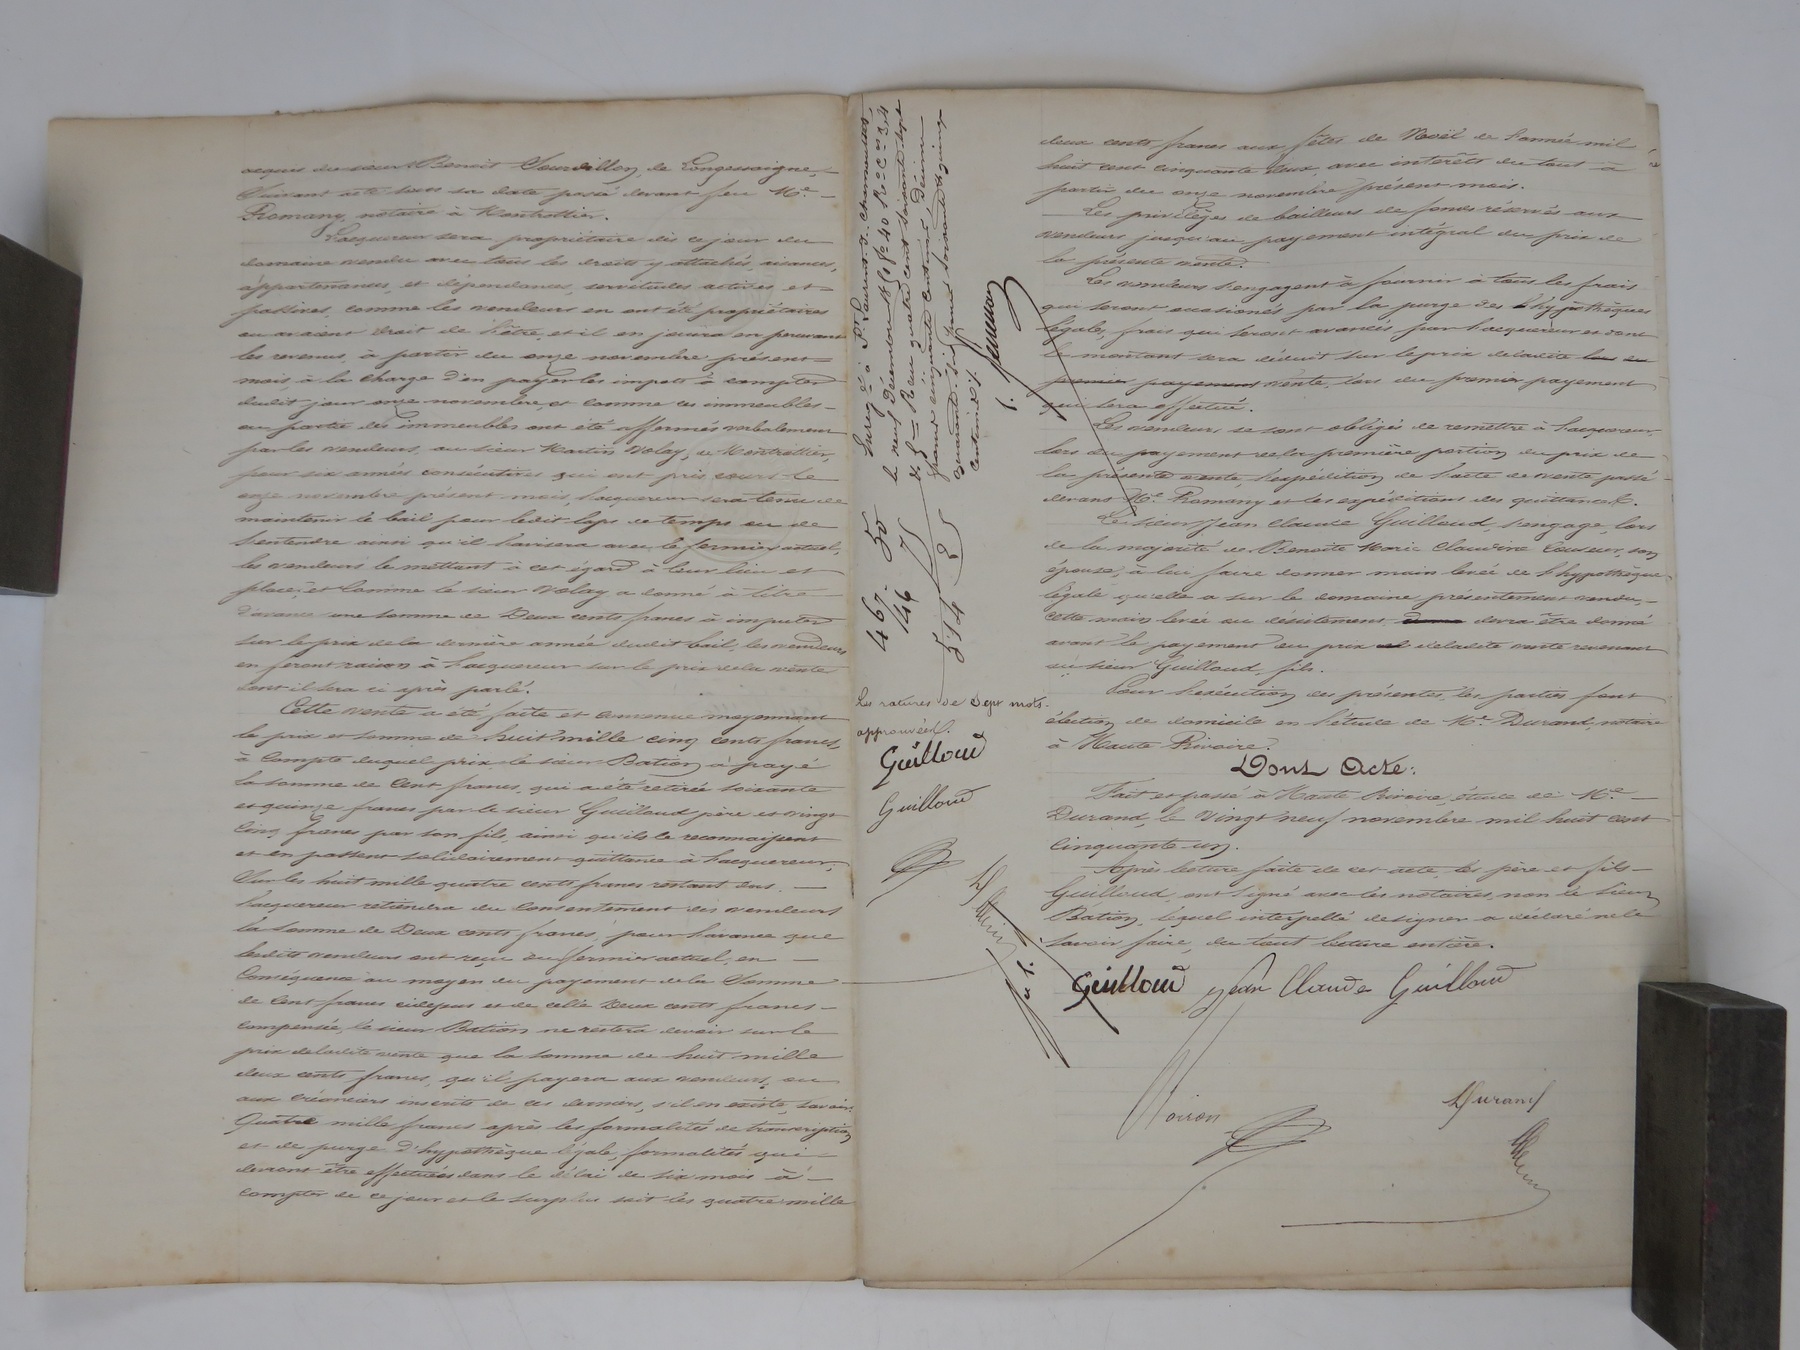 acquis du sieur Benoit Jourdillon, de Longessaigne,
Suivant acte sous sa date passé devant feu Me
Romany, notaire à Montrottier.
L'acquereur sera propriétaire dès ce jour du
domaine vendu avec tous les droits y attachés, aisances,
appartenances, et dépendances, servitudes actives, et
passives, comme les vendeurs en ont été propriétaires
ou avaient droit de l'être, et il en jouira en percevant
les revenus, à partir du onze novembre présent
mois, à la charge d'en payer les impots à compter
dudit jour onze novembre, et comme ces immeubles
ou partie des immeubles ont été affermés verbalement
par les vendeurs, au sieur Martin Volay, de Montrottier,
pour six années consécutives qui ont pris cours le
onze novembre présent mois, l'acquereur sera tenu de
maintenir le bail pour ledit laps de temps ou de
s'entendre ainsi qu'il l'avisera avec le fermier actuel,
les vendeurs le mettant à cet égard à leur lieu et
place, et comme le sieur Volay a donné à titre
d'avance une somme de Deux cents francs à imputer
sur le prix de la dernière année dudit bail, les vendeurs
en feront raison à l'acquereur sur le prix de la vente
dont il sera ci après parlé.
Cette vente a été faite et convenue moyennant
le prix et somme de huit mille cinq cents francs,
à compte duquel prix le sieur Bation a payé
la somme de Cent francs, qui a été retirée soixante
et quinze francs par le sieur Guilloud père et vingt
cinq francs par son fils, ainsi qu'ils le reconnaissent
et en passent solidairement quittance à l'acquereur,
Sur les huit mille quatre cents francs restant dus
l'acquereur retiendra du Consentement des vendeurs
la somme de Deux cents francs, pour l'avance que
lesdits vendeurs ont reçu du fermier actuel, en
Conséquence au moyen du payement de la Somme
de Cent francs cidessus et de celle Deux cents francs
compensée, le sieur Bation ne restera devoir sur le
prix de ladite vente que la somme de huit mille
deux cents francs, qu'il payera aux vendeurs, ou
aux créanciers inscrits de ces derniers, s'il en existe, savoir:
Quatre mille francs après les formalités de transcription
et de purge d'hypothèque légale, formalités qui
devront être effectuées dans le délai de six mois à
compter de ce jour et le surplus soit les quatre mille
Enregé à St Laurent-de-Chamousset
le neuf Décembre 1851 fo 40 Ro Ces 3, 4
&. 5 = Reçu quatre cent soixante sept
francs cinquante Centimes Décime
quarante six francs soixante & quinze
Centimes ./.
467. 50
46 75
514 25
Les ratures de Sept mots
approuvées.
Guilloud
Guilloud
deux cents francs aux fêtes de Noël de l'année mil
huit cent cinquante deux, avec intérêts du tout à
partir du onze novembre présent mois.
Les privilèges de bailleurs de fonds réservés aux
vendeurs jusqu'au payement intégral du prix de
la présente vente.
Les vendeurs s'engagent à fournir à tous les frais
qui seront occasionés par la purge des hypothèques
légales, frais qui seront avancés par l'acquereur et dont
le montant sera déduit sur le prix de ladite
premier payement vente, lors du premier payement
qui sera effectué.
Les vendeurs se sont obligés de remettre à l'acquereur,
lors du payement de la première portion du prix de
la présente vente, l'expédition de l'acte de vente passé
devant Me Romany et les expéditions des quittances.
Le sieur Jean Claude Guilloud, s'engage, lors
de la majorité de Benoite Marie Claudine son
épouse, à lui faire donner main levée de l'hypothèque
légale qu'elle a sur le domaine présentement vendu,
cette main levée ou désistement, devra être donné
avant le payement du prix de ladite vente revenant
au sieur Guilloud, fils.
Pour l'exécution des présentes, les parties font
élection de domicile en l'étude de Me Durand, notaire
à Haute Rivoire.
Dont Acte:
Fait et passé à Haute Rivoire, étude de Me
Durand, le Vingt neuf novembre mil huit cent
cinquante un.
Après lecture faite de cet acte, les père et fils
Guilloud, ont signé avec les notaires, non le sieur
Bation, lequel interpellé de signer a déclaré ne le
savoir faire, du tout lecture entière.
Guilloud Jean Claude Guilloud
Durand